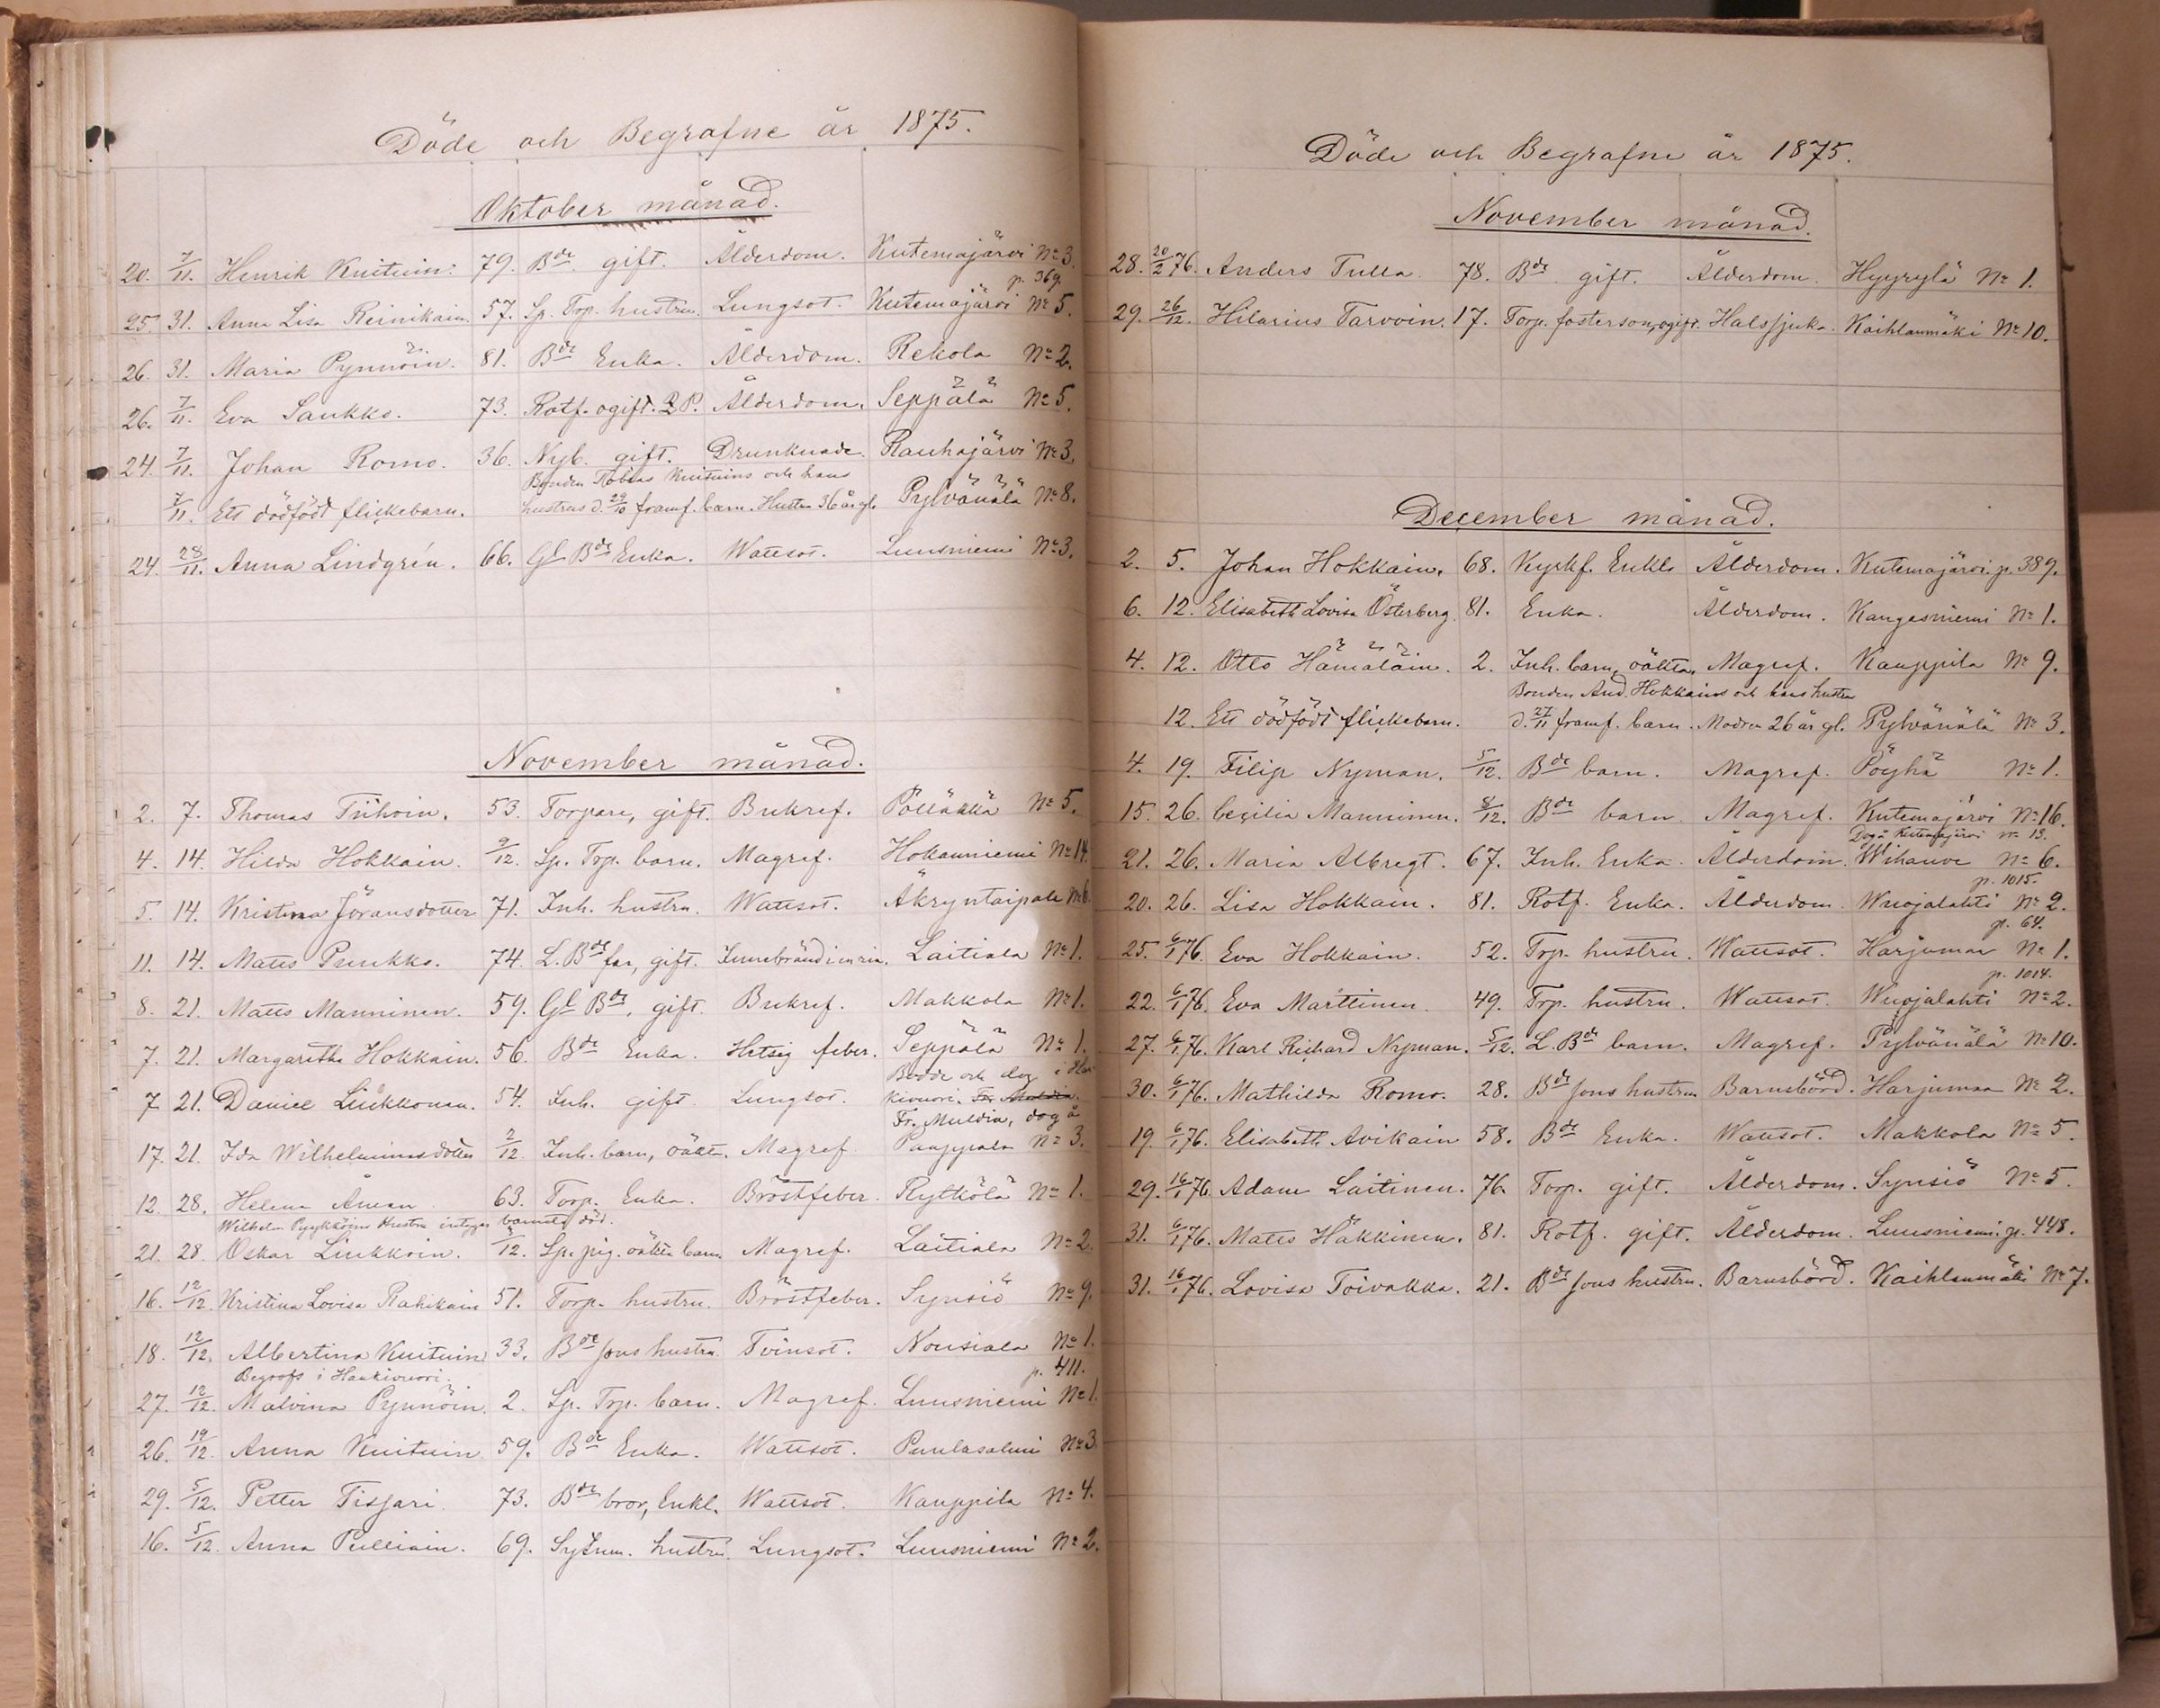 Döde och Begrafne år 1875.
Oktober månad.
20. 7/11. Henrik Kuituin. 79. Bde gift. Ålderdom. Kutemajärvi No 3.
p. 369.
25. 31. Anna Lisa Reinikain. 57. Sp. Trp. hustru. Lungsot. Kutemajärvi No 5.
26. 31. Maria Pynnöin. 81. Bde Enka. Ålderdom. Rekola No 2.
26. 7/11. Eva Saukko. 73. Rotf. ogift. Q P. Ålderdom. Seppälä No 5.
24. 7/11. Johan Romo. 36. Nyb. gift. Drunknade. Rauhajärvi No 3.
Bonden Tobias Kuituins och hans
7/11. Ett dödfödt flickebarn. hustrus d. 29/10 framf. barn. Hustrun 36 år gl. Pylvänälä No 8.
24. 28/11. Anna Lindgrén. 66. Gl Bde Enka. Wattsot. Luusniemi No 3.
November månad.
2. 7. Thomas Tiihoin. 53. Torpare, gift. Bukref. Pöllákkä No 5.
4. 14. Hilda Hokkain. 9/12. Sp. Trp. barn. Magref. Hokanniemi No 14.
5. 14. Kristina Göransdotter 71. Inh. hustru. Wattsot. Äkryntaipale No 6.
11. 14. Matts Puukko. 74. L. Bde far, gift. Laitiala No 1.
8. 21. Matts Manninen. 59. Gl Bde, gift. Bukref. Makkola No 1.
7. 21. Margaretha Hokkain. 56. Bde Enka. Hetsig feber. Seppälä No 1.
Bodde och dog i
7 21. Daniel Liukkonen. 54. Inh. gift Lungsot. kivuori. Fr. Muldia.
Fr. Muldia, dog å
17. 21. Ida Wilhelminasdotter 2/12 Inh. barn, oäkt. Magref. Pauppala No 3.
12. 28. Helena Änean 63. Torp. Enka. Bröstfeber. Rytkölä No 1.
Wilhelm Pyykköins Hustru intygar barnets död.
21. 28. Oskar Liukkoin. /12. Sp. pig. oäkta barn Magref. Laitiala No 2.
16. 12/12 Kristina Lovisa Rahikain 51. Torp. hustru. Bröstfeber. Synsiö No 9.
18. 12/12. Albertina Kuituin 33. Bde sons hustru. Tvinsot. Nousiala No 1.
Begrofs i Haukivuori. p. 411.
27. 12/12. Malvina Pynnöin. 2. Sp. Trp. barn. Magref. Luusniemi No 1.
26. 19/12. Anna Kuituin 59. Bde Enka. Wattsot. Puulasalmi No 3.
29. 5/12. Petter Tissari. 73. Bde bror, Enkl. Wattsot. Kauppila No 4.
16. 5/12. Anna Pulliain. 69. Sytnm. hustru. Lungsot. Luusniemi No 2.
Döde och Begrafne år 1875.
November månad.
28. 20/2 76. Anders Tulla. 78. Bde gift. Ålderdom. Hyyrylä No 1.
29. 26/12. Hilarius Tarvoin. 17. Torp. fosterson, ogift. Halssjuka. Kaihlanmäki No 10.
December månad.
2. 5. Johan Hokkain. 68. Kyrkf. Enkl. Ålderdom. Kutemajärvi p. 389.
6. 12. Elisabeth Lovisa Österberg. 81. Enka. Ålderdom. Kangasniemi No 1.
4. 12. Otto Hämäläin. 2. Inh. barn, oäkta. Magref. Kauppila No 9.
Bonden And. Hokkains och hans hustru
12. Ett dödfödt flickebarn. d. 27/11 framf. barn. Modren 26 år gl. Pylvänälä No 3.
4. 19. Filip Nyman. 5/12. Bde barn. Magref. Pöyhä No 1.
15. 26. Cecilia Manninen. 8/12. Bde barn. Magref. Kutemajärvi No 16.
Dog å Kutemajärvi no 13.
21. 26. Maria Albregt. 67. Inh. Enka. Ålderdom. Wihanve No 6.
p. 1015.
20. 26. Lisa Hokkain. 81. Rotf. Enka. Ålderdom. Wuojalahti No 2.
p. 64.
25. 6/1 76. Eva Hokkain. 52. Trp. hustru. Wattsot. Harjumaa No 1.
p. 1014.
22. 6/1 76. Eva Marttinen. 49. Trp. hustru. Wattsot. Wuojalahti No 2.
27. 6/1 76. Karl Richard Nyman. 5/12. L. Bde barn. Magref. Pylvänälä No 10.
30. 6/1 76. Mathilda Romo. 28. Bde sons hustru Barnsbörd. Harjumaa No 2.
19. 6/1 76. Elisabeth Avikain 58. Bde Enka. Wattsot. Makkola No 5.
29. 16/1 76. Adam Laitinen. 76. Torp. gift. Ålderdom. Synsiö No 5.
31. 6/1 76. Matts Häkkinen. 81. Rotf. gift. Ålderdom. Luusniemi p. 448.
31. 16/1 76. Lovisa Toivakka. 21. Bde sons hustru. Barnsbörd. Kaihlanmäki No 7.